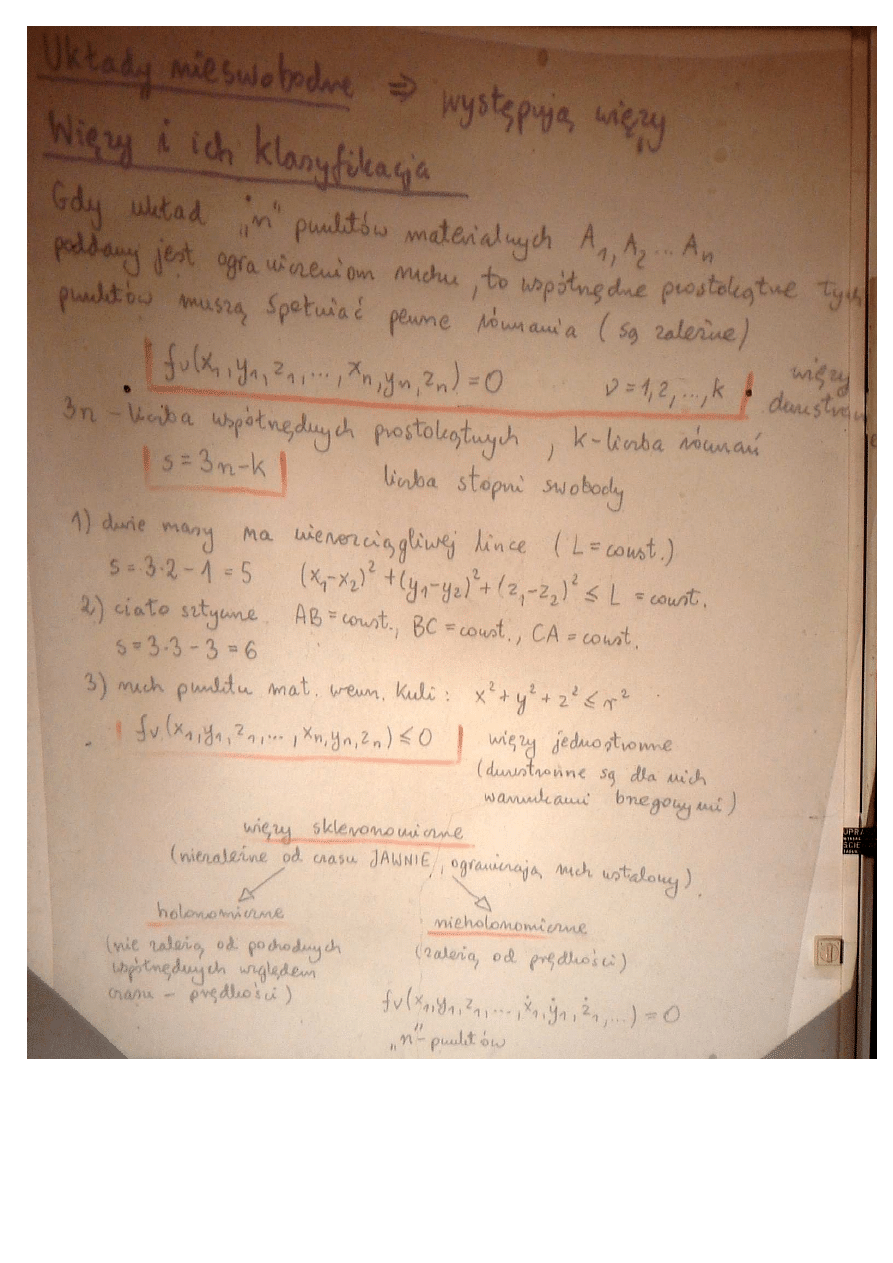 Układy nieswobodne ⇒ występują więzy
Więzy i ich klasyfikacja
Gdy układ „n" punktów materialnych A₁, A₂ ... Aₙ
poddany jest ograniczeniom ruchu, to współrzędne prostokątne tych
punktów muszą spełniać pewne równania (są zależne)
fν(x₁, y₁, z₁, ..., xₙ, yₙ, zₙ) = 0 ν = 1, 2, ..., k więzy
3n - liczba współrzędnych prostokątnych, k - liczba równań
s = 3n - k liczba stopni swobody
1) dwie masy na nierozciągliwej lince (L = const.)
s = 3·2 - 1 = 5 (x₁-x₂)² + (y₁-y₂)² + (z₁-z₂)² ≤ L = const.
2) ciało sztywne. AB = const., BC = const., CA = const.
s = 3·3 - 3 = 6
3) ruch punktu mat. wewn. kuli: x² + y² + z² ≤ r²
fν(x₁, y₁, z₁, ..., xₙ, yₙ, zₙ) ≤ 0 więzy jednostronne
(dwustronne są dla nich
warunkami brzegowymi)
więzy skleronomiczne
(niezależne od czasu JAWNIE, ograniczają ruch ustalony).
holonomiczne nieholonomiczne
(nie zależą od pochodnych (zależą od prędkości)
współrzędnych względem
czasu - prędkości) fν(x₁, y₁, z₁, ..., ẋ₁, ẏ₁, ż₁, ...) = 0
„n" - punktów